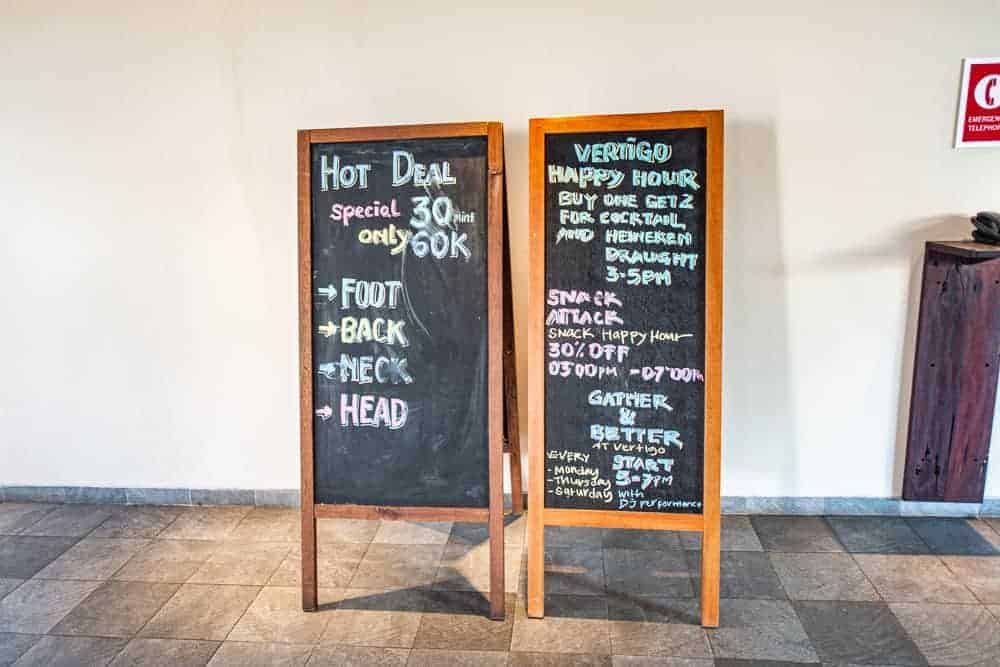 HOT DEAL
special 30 mint
only 60K
→ FOOT
→ BACK
→ NECK
→ HEAD
VERTIGO
HAPPY HOUR
BUY ONE GET 2
FOR COCKTAIL
AND HEINEKEN
DRAUGHT
3-5PM
SNACK
ATTACK
SNACK HAPPY HOUR
30% OFF
03:00PM - 07:00PM
GATHER
&
BETTER
AT Vertigo
EVERY
- Monday
- Thursday
- Saturday
START
5-7PM
With
DJ Performance
EMERGEN
TELEPHO